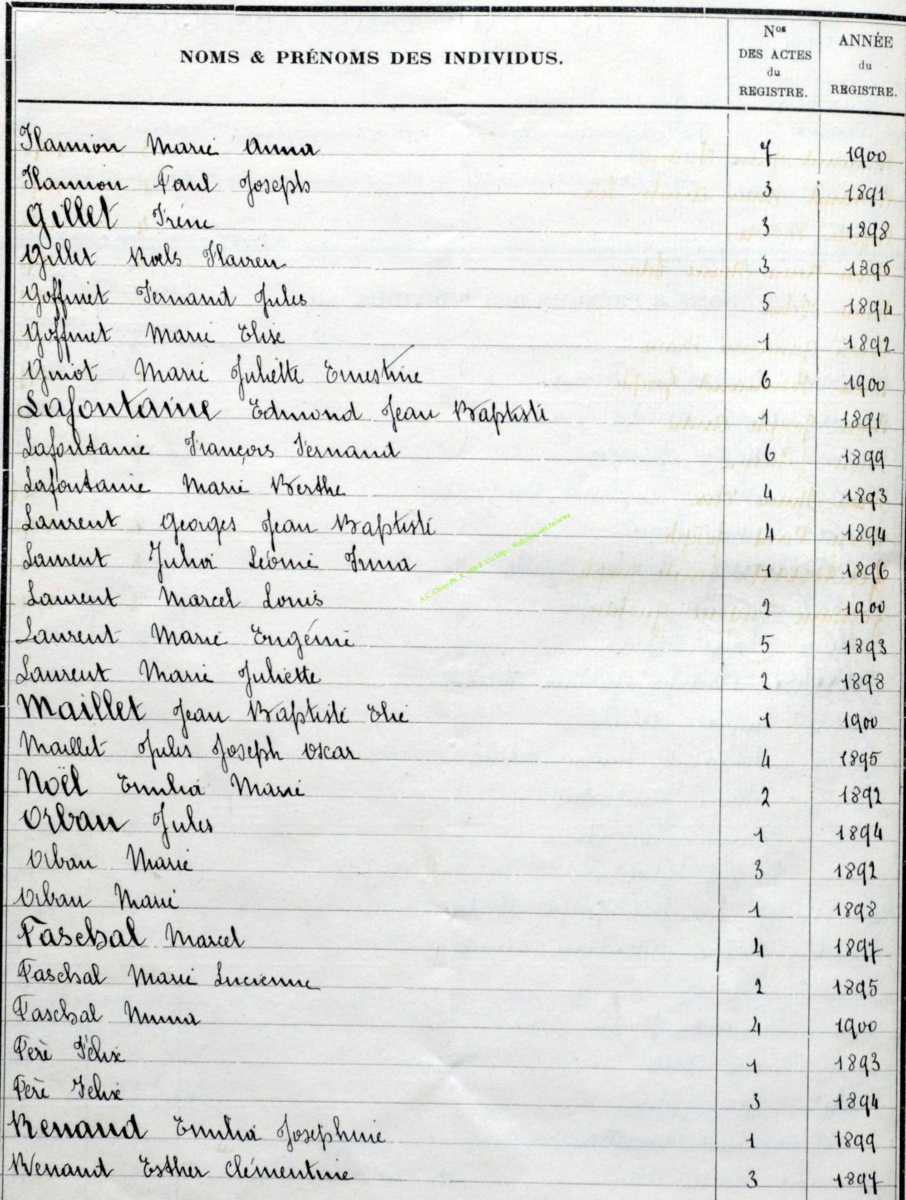 NOMS & PRÉNOMS DES INDIVIDUS. Nos DES ACTES du REGISTRE. ANNÉE du REGISTRE.
Marie Anna 7 1900
Paul Joseph 3 1891
Gillet Irène 3 1898
Gillet 3 1896
Goffinet Fernand Jules 5 1894
Goffinet Marie Elise 1 1892
Guiot Marie Juliette Ernestine 6 1900
Lafontaine Edmond Jean Baptiste 1 1891
Lafontaine François Fernand 6 1899
Lafontaine Marie Berthe 4 1893
Laurent Georges Jean Baptiste 4 1894
Laurent Julia Léonie Irma 1 1896
Laurent Marcel Louis 2 1900
Laurent Marie Eugénie 5 1893
Laurent Marie Juliette 2 1898
Maillet Jean Baptiste Elie 1 1900
Maillet Jules Joseph Oscar 4 1895
Noël Emilia Marie 2 1892
Orban Jules 1 1894
Orban Marie 3 1892
Orban Marie 1 1898
Paschal Marcel 4 1897
Paschal Marie Lucienne 2 1895
Paschal 4 1900
Père Félix 1 1893
Père Félix 3 1894
Renaud Emilia Joséphine 1 1899
Renaud Esther Clémentine 3 1897